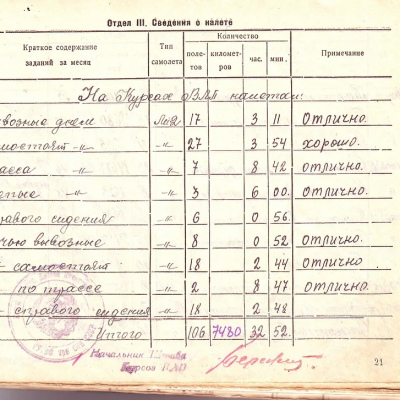 Отдел III. Сведения о налете
Краткое содержание заданий за месяц
Тип самолета
Количество
полетов
километров
час.
мин.
Примечание
На Курсах ВЛП налетал:
возные днем По-2 17 3 11 Отлично.
мостоят -"- -"- 27 3 54 хорошо.
асса -"- -"- 7 8 42 отлично.
епые -"- -"- 3 6 00. Отлично.
правого сидения -"- 6 0 56.
чью вывозные -"- 8 0 52 отлично.
- самостоят -"- 18 2 44 Отлично
по трассе -"- 2 8 47 Отлично.
- с правого сидения -"- 18 2 48
Итого 106 7480 32 52.
Начальник Штаба
Курсов
21